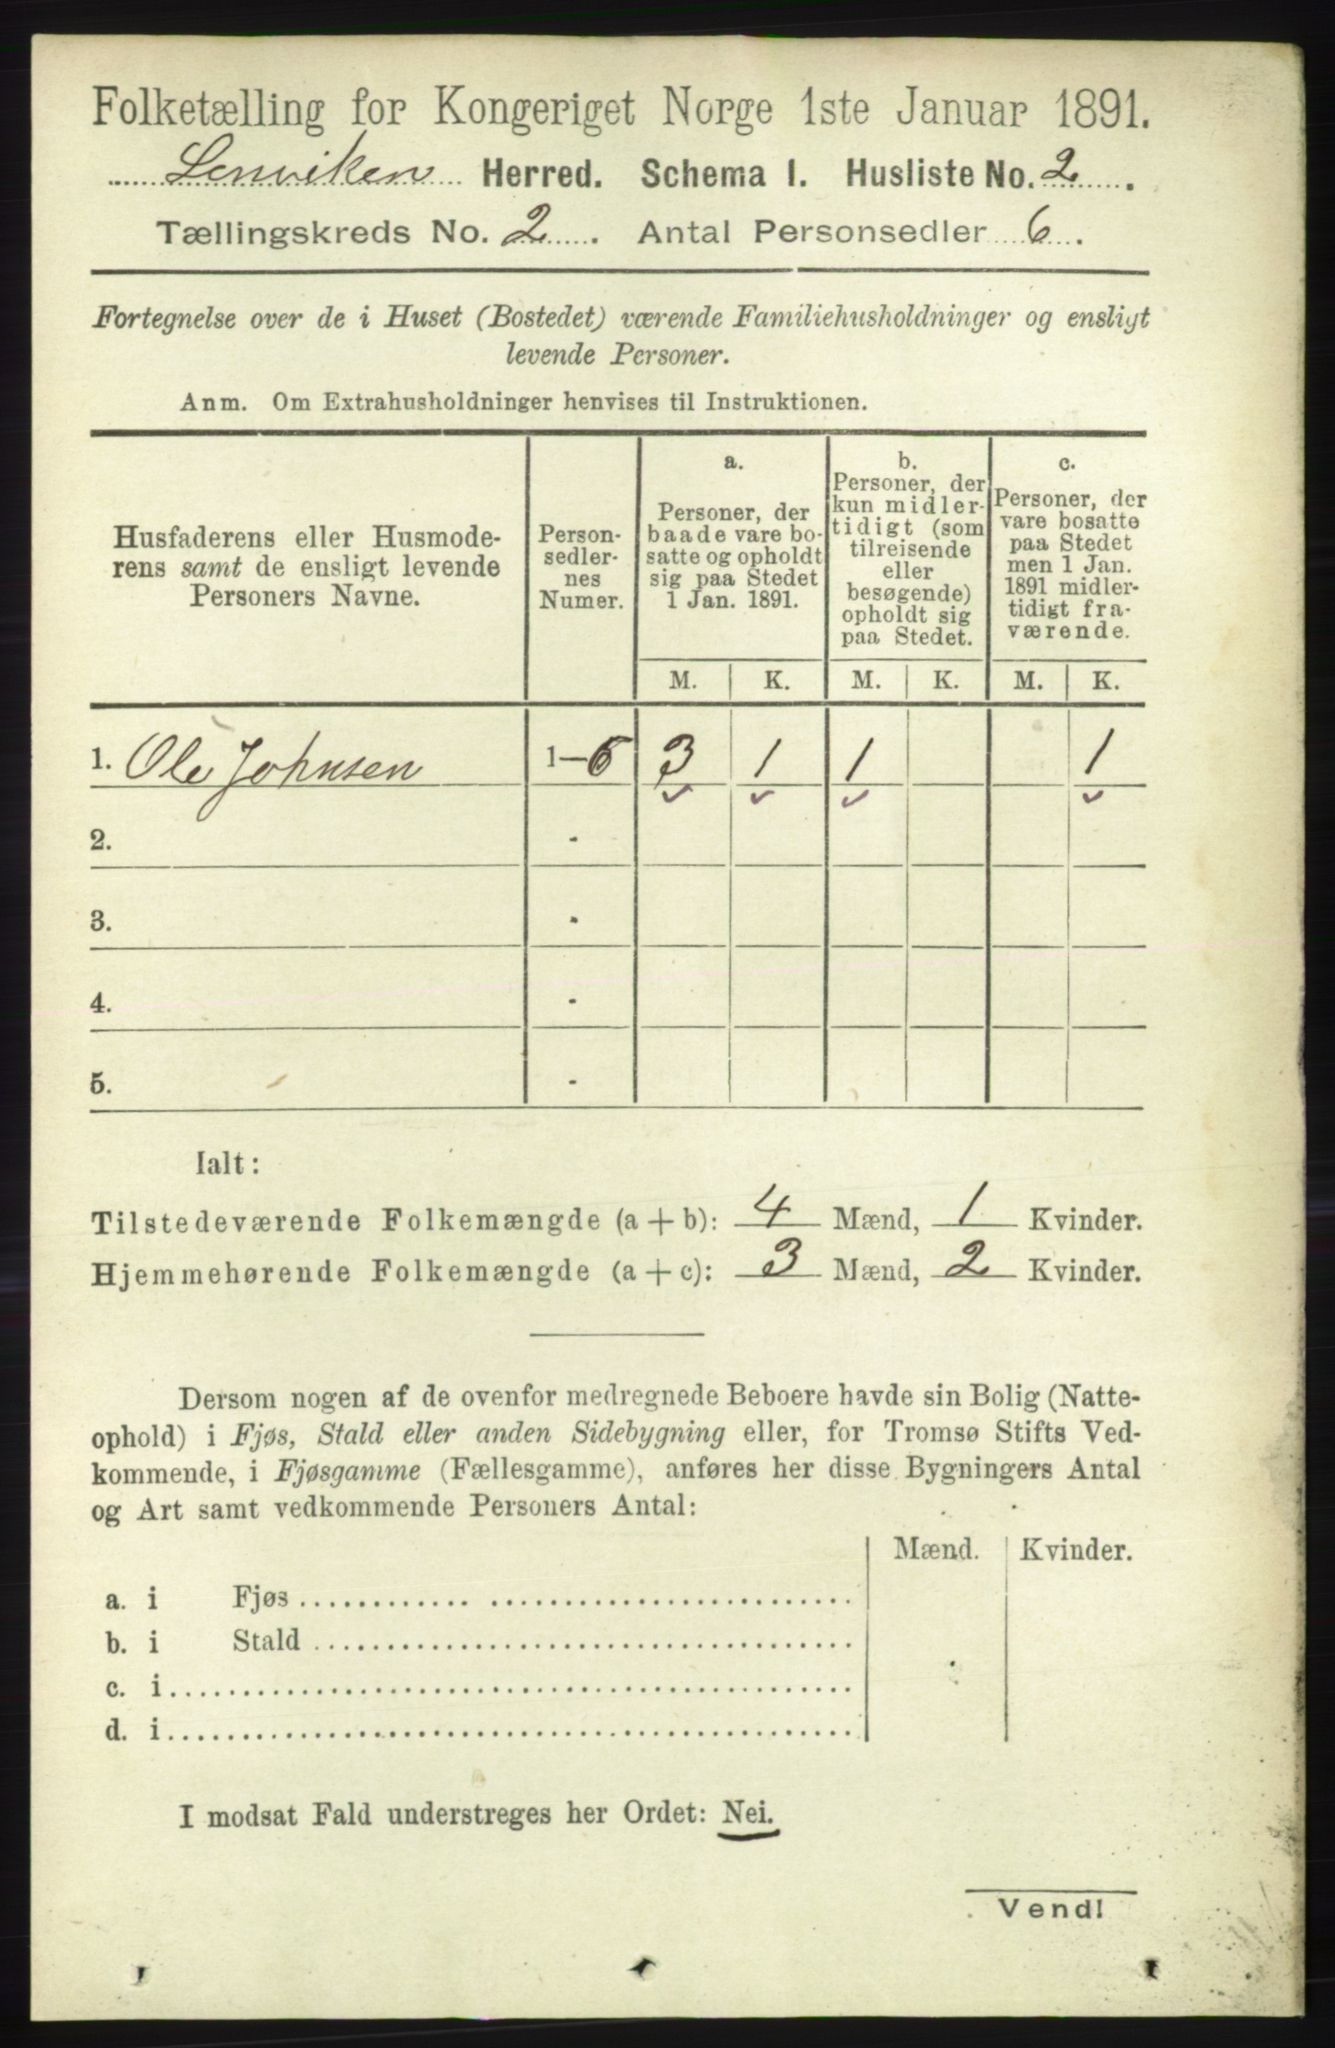 Folketælling for Kongeriget Norge 1ste Januar 1891.
Lenviken Herred. Schema I. Husliste No. 2.
Tællingskreds No. 2. Antal Personsedler 6.
Fortegnelse over de i Huset (Bostedet) værende Familiehusholdninger og ensligt
levende Personer.
Anm. Om Extrahusholdninger henvises til Instruktionen.
Husfaderens eller Husmode-
rens samt de ensligt levende
Personers Navne.
Person-
sedler-
nes
Numer.
a.
Personer, der
baade vare bo-
satte og opholdt
sig paa Stedet
1 Jan. 1891.
b.
Personer, der
kun midler-
tidigt (som
tilreisende
eller
besøgende)
opholdt sig
paa Stedet.
c.
Personer, der
vare bosatte
paa Stedet
men 1 Jan.
1891 midler-
tidigt fra-
værende.
M. K. M. K. M. K.
1. Ole Johnsen 1-6 3 1 1 1
2. -
3. -
4. -
5. -
Ialt:
Tilstedeværende Folkemængde (a + b): 4 Mænd, 1 Kvinder.
Hjemmehørende Folkemængde (a + c): 3 Mænd, 2 Kvinder.
Dersom nogen af de ovenfor medregnede Beboere havde sin Bolig (Natte-
ophold) i Fjøs, Stald eller anden Sidebygning eller, for Tromsø Stifts Ved-
kommende, i Fjøsgamme (Fællesgamme), anføres her disse Bygningers Antal
og Art samt vedkommende Personers Antal:
Mænd. Kvinder.
a. i Fjøs
b. i Stald
c. i
d. i
I modsat Fald understreges her Ordet: Nei.
Vend!